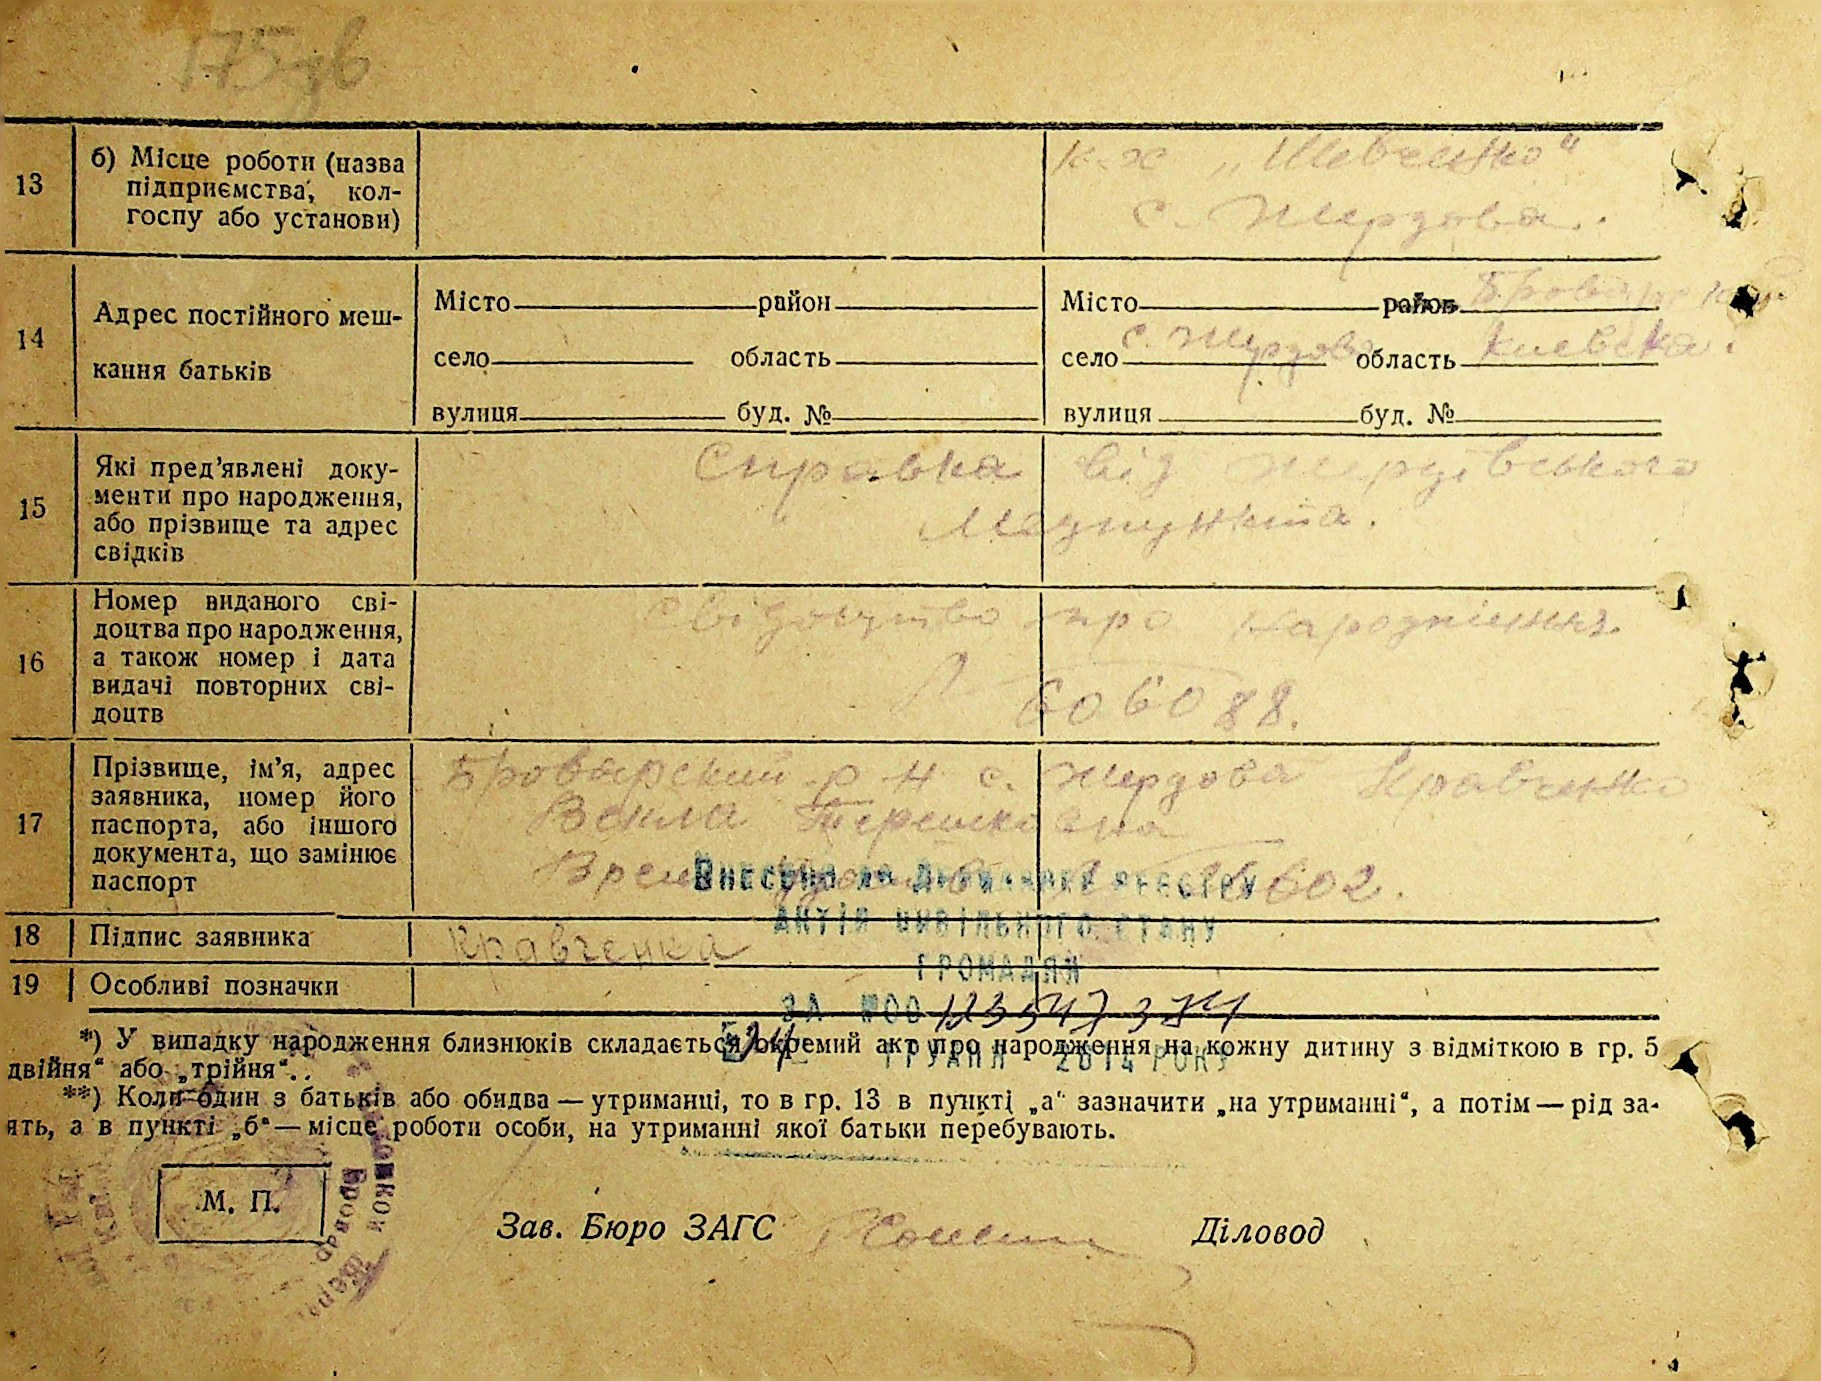 175 зв
13
б) Місце роботи (назва
підприємства, кол-
госпу або установи)
к-х „Шевченко"
с. Жердова.
14
Адрес постійного меш-
кання батьків
Місто район
село область
вулиця буд. №
Місто район Броварский
село с. Жердова область Киевска.
вулиця буд. №
15
Які пред’явлені доку-
менти про народження,
або прізвище та адрес
свідків
Справка від Жердівського
Медпункта.
16
Номер виданого сві-
доцтва про народження,
а також номер і дата
видачі повторних сві-
доцтв
Свідоцтво про народження
606088.
17
Прізвище, ім’я, адрес
заявника, номер його
паспорта, або іншого
документа, що замінює
паспорт
Броварский р-н с. Жердова Кравченко
Векла
602.
Внесено до Державного реєстру
актів цивільного стану
громадян
за №00 123547374
24 грудня 2014 року
18
Підпис заявника
Кравченко
19
Особливі позначки
*) У випадку народження близнюків складається окремий акт про народження на кожну дитину з відміткою в гр. 5
двійня“ або „трійня“.
**) Коли один з батьків або обидва — утриманці, то в гр. 13 в пункті „а“ зазначити „на утриманні“, а потім — рід за-
ять, а в пункті „б“ — місце роботи особи, на утриманні якої батьки перебувають.
М. П.
Зав. Бюро ЗАГС
Діловод